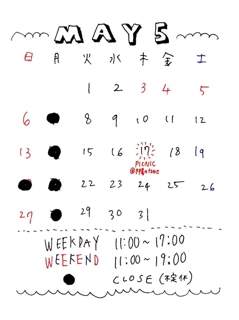 MAY 5
日 月 火 水 木 金 土
1 2 3 4 5
6 ● 8 9 10 11 12
13 ● 15 16 17 18 19
PICNIC
● ● 22 23 24 25 26
27 ● 29 30 31
WEEKDAY 11:00~17:00
WEEKEND 11:00~19:00
● CLOSE (不定休)